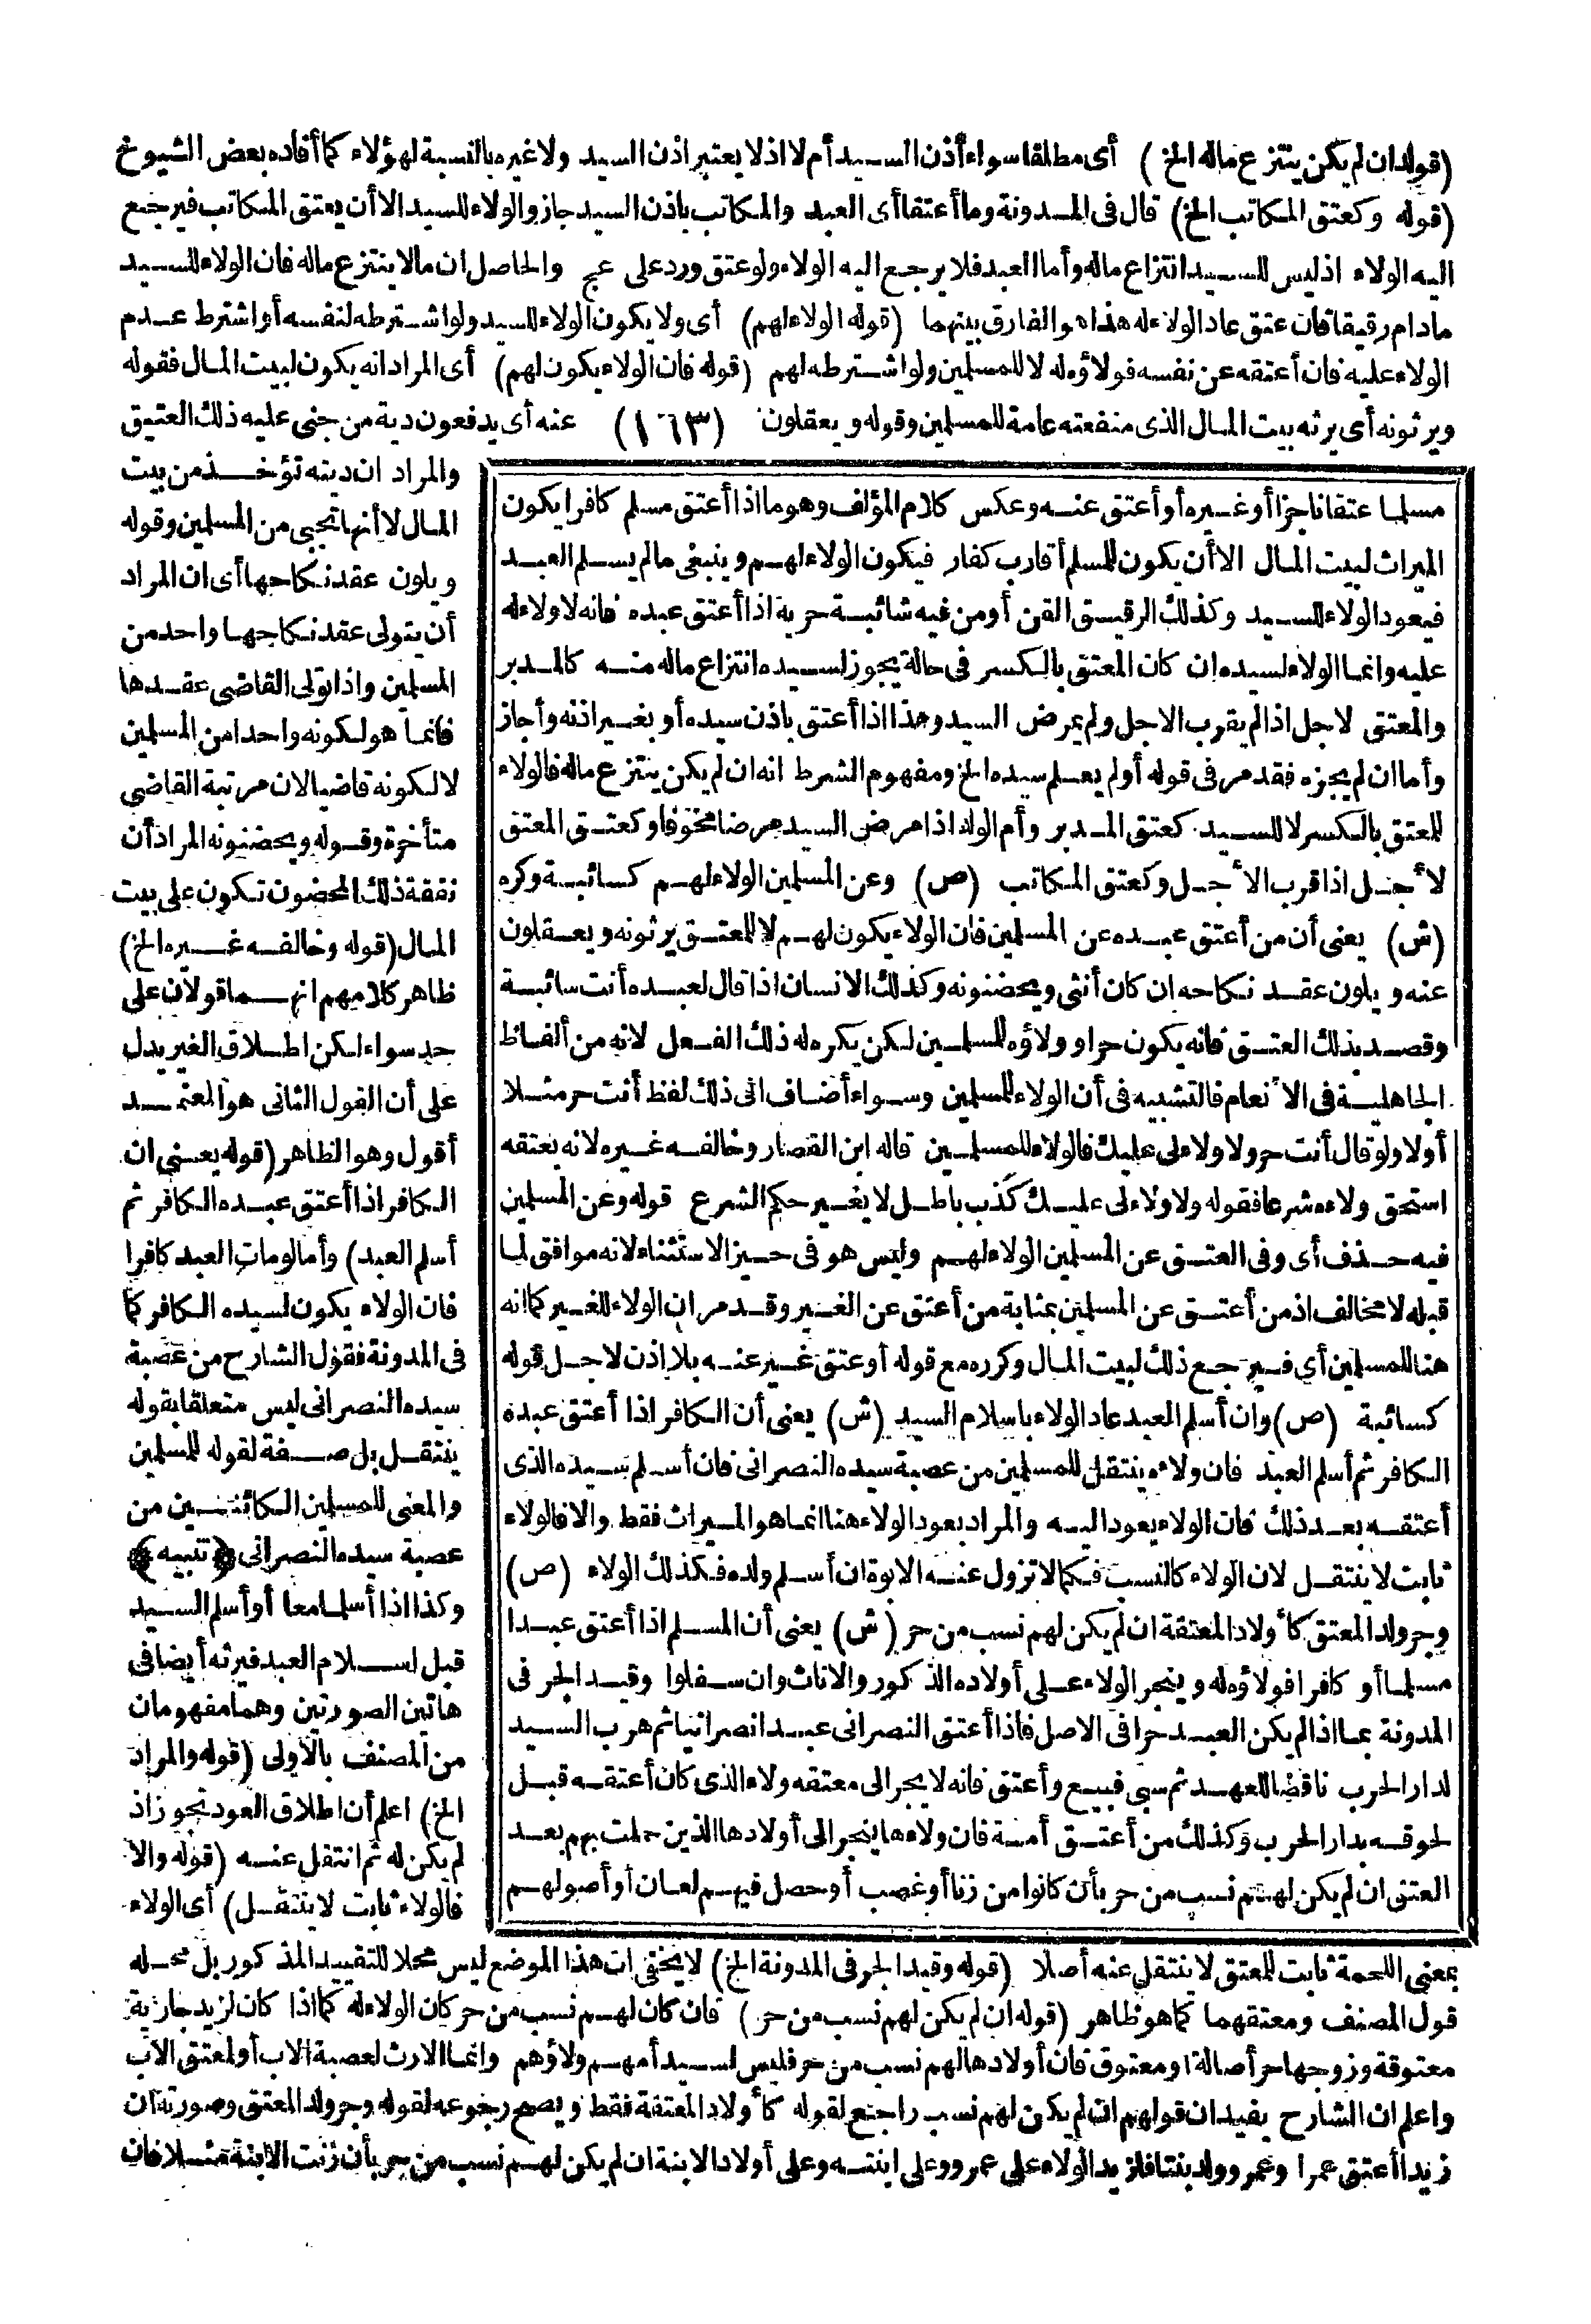 (قوله ان لم يكن ينتزع ماله الخ) أى مطلقا سواء أذن السيد أم لا اذ لا يعتبر اذن السيد ولا غيره بالنسبة لهؤلاء كما أفاده بعض الشيوخ
(قوله وكعتق المكاتب الخ) قال فى المدونة وما أعتقا أى العبد والمكاتب باذن السيد جاز والولاء للسيد الا أن يعتق المكاتب فيرجع
اليه الولاء اذ ليس للسيد انتزاع ماله وأما العبد فلا يرجع اليه الولاء ولو عتق ورد على عج والحاصل ان مالا ينتزع ماله فان الولاء للسيد
مادام رقيقا فان عتق عاد الولاء له هذا هو الفارق بينهما (قوله الولاء لهم) أى ولا يكون الولاء للسيد ولو اشترطه لنفسه أو اشترط عدم
الولاء عليه فان أعتقه عن نفسه فولاؤه له لا للمسلمين ولو اشترطه لهم (قوله فان الولاء يكون لهم) أى المراد انه يكون لبيت المال فقوله
ويرثونه أى يرثه بيت المال الذى منفعته عامة للمسلمين وقوله ويعقلون (١٦٣) عنه أى يدفعون دية من جنى عليه ذلك العتيق
مسلما عتقا ناجزا أو غيره أو أعتق عنه وعكس كلام المؤلف وهو ما اذا أعتق مسلم كافرا يكون
الميراث لبيت المال الا أن يكون للمسلم أقارب كفار فيكون الولاء لهم وينبغى مالم يسلم العبد
فيعود الولاء للسيد وكذلك الرقيق القن أو من فيه شائبة حرية اذا أعتق عبده فانه لا ولاء له
عليه وانما الولاء لسيده ان كان المعتق بالكسر فى حالة يجوز لسيده انتزاع ماله منه كالمدبر
والمعتق لاجل اذا لم يقرب الاجل ولم يمرض السيد وهذا اذا أعتق باذن سيده أو بغير اذنه وأجاز
وأما ان لم يجزه فقد مر فى قوله أو لم يعلم سيده الخ ومفهوم الشرط انه ان لم يكن ينتزع ماله فالولاء
للمعتق بالكسر لا للسيد كعتق المدبر وأم الولد اذا مرض السيد مرضا مخوفا وكعتق المعتق
لأجل اذا قرب الأجل وكعتق المكاتب (ص) وعن المسلمين الولاء لهم كسائبة وكره
(ش) يعنى أن من أعتق عبده عن المسلمين فان الولاء يكون لهم لا للمعتق يرثونه ويعقلون
عنه ويلون عقد نكاحه ان كان أنثى ويحضنونه وكذلك الانسان اذا قال لعبده أنت سائبة
وقصد بذلك العتق فانه يكون حرا وولاؤه للمسلمين لكن يكره له ذلك الفعل لانه من ألفاظ
الجاهلية فى الأنعام فالتشبيه فى أن الولاء للمسلمين وسواء أضاف الى ذلك لفظ أنت حر مثلا
أولا ولو قال أنت حر ولا ولاء لى عليك فالولاء للمسلمين قاله ابن القصار وخالفه غيره لانه بعتقه
استحق ولاءه شرعا فقوله ولا ولاء لى عليك كذب باطل لا يغير حكم الشرع قوله وعن المسلمين
فيه حذف أى وفى العتق عن المسلمين الولاء لهم وليس هو فى حيز الاستثناء لانه موافق لما
قبله لا مخالف اذ من أعتق عن المسلمين بمثابة من أعتق عن الغير وقد مر ان الولاء للغير كما انه
هنا للمسلمين أى فيرجع ذلك لبيت المال وكرره مع قوله أو عتق غير عنه بلا اذن لاجل قوله
كسائبة (ص) وان أسلم العبد عاد الولاء باسلام السيد (ش) يعنى أن الكافر اذا أعتق عبده
الكافر ثم أسلم العبد فان ولاءه ينتقل للمسلمين من عصبة سيده النصرانى فان أسلم سيده الذى
أعتقه بعد ذلك فان الولاء يعود اليه والمراد بعود الولاء هنا انما هو الميراث فقط والا فالولاء
ثابت لا ينتقل لان الولاء كالنسب فكما لا تزول عنه الابوة ان أسلم ولده فكذلك الولاء (ص)
وجر ولد المعتق كأولاد المعتقة ان لم يكن لهم نسب من حر (ش) يعنى أن المسلم اذا أعتق عبدا
مسلما أو كافرا فولاؤه له وينجر الولاء على أولاده الذكور والاناث وان سفلوا وقيد الجر فى
المدونة بما اذا لم يكن العبد حرا فى الاصل فاذا أعتق النصرانى عبدا نصرانيا ثم هرب السيد
لدار الحرب ناقضا للعهد ثم سبى فبيع وأعتق فانه لا يجر الى معتقه ولاء الذى كان أعتقه قبل
لحوقه بدار الحرب وكذلك من أعتق أمة فان ولاءها ينجر الى أولادها الذين حملت بهم بعد
العتق ان لم يكن لهم نسب من حر بأن كانوا من زنا أو غصب أو حصل فيهم لعان أو أصولهم
والمراد ان ديته تؤخذ من بيت
المال لا أنها تجبى من المسلمين وقوله
ويلون عقد نكاحها أى ان المراد
أن يتولى عقد نكاحها واحد من
المسلمين واذا تولى القاضى عقدها
فانما هو لكونه واحدا من المسلمين
لا لكونه قاضيا لان مرتبة القاضى
متأخرة وقوله ويحضنونه المراد أن
نفقة ذلك المحضون تكون على بيت
المال (قوله وخالفه غيره الخ)
ظاهر كلامهم انهما قولان على
حد سواء لكن اطلاق الغير يدل
على أن القول الثانى هو المعتمد
أقول وهو الظاهر (قوله يعنى ان
الكافر اذا أعتق عبده الكافر ثم
أسلم العبد) وأما لو مات العبد كافرا
فان الولاء يكون لسيده الكافر كما
فى المدونة فقول الشارح من عصبة
سيده النصرانى ليس متعلقا بقوله
ينتقل بل صفة لقوله للمسلمين
والمعنى للمسلمين الكائنين من
عصبة سيده النصرانى ﴿تنبيه﴾
وكذا اذا أسلما معا أو أسلم السيد
قبل اسلام العبد فيرثه أيضا فى
هاتين الصورتين وهما مفهومان
من المصنف بالاولى (قوله والمراد
الخ) اعلم أن اطلاق العود تجوز اذ
لم يكن له ثم انتقل عنه (قوله والا
فالولاء ثابت لا ينتقل) أى الولاء
بمعنى اللحمة ثابت للمعتق لا ينتقل عنه أصلا (قوله وقيد الجر فى المدونة الخ) لا يخفى ان هذا الموضع ليس محلا للتقييد المذكور بل محله
قول المصنف ومعتقهما كما هو ظاهر (قوله ان لم يكن لهم نسب من حر) فان كان لهم نسب من حر كان الولاء له كما اذا كان لزيد جارية
معتوقة وزوجها حر أصالة او معتوق فان أولادها لهم نسب من حر فليس لسيد أمهم ولاؤهم وانما الارث لعصبة الاب أو لمعتق الاب
واعلم ان الشارح يفيد ان قولهم ان لم يكن لهم نسب راجع لقوله كأولاد المعتقة فقط ويصح رجوعه لقوله وجر ولد المعتق وصورته ان
زيدا أعتق عمرا وعمرو ولد بنتا فلزيد الولاء على عمرو وعلى ابنته وعلى أولاد الابنة ان لم يكن لهم نسب من حر بأن زنت الابنة مثلا فان